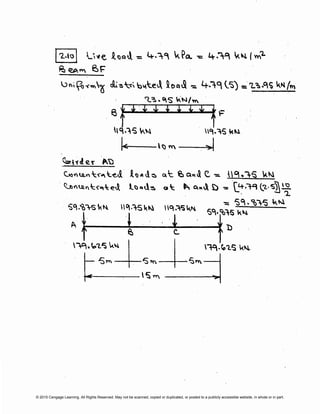 2.10 Live load = 4.79 kPa = 4.79 kN/m²
Beam BF
Uniformly distributed load = 4.79 (5) = 23.95 kN/m
23.95 kN/m
B F
119.75 kN 119.75 kN
10 m
Girder AD
Concentrated loads at B and C = 119.75 kN
Concentrated loads at A and D = [4.79 (2.5)] 10/2
= 59.875 kN
59.875 kN 119.75 kN 119.75 kN 59.875 kN
A B C D
179.625 kN 179.625 kN
5m 5m 5m
15 m
© 2015 Cengage Learning. All Rights Reserved. May not be scanned, copied or duplicated, or posted to a publicly accessible website, in whole or in part.